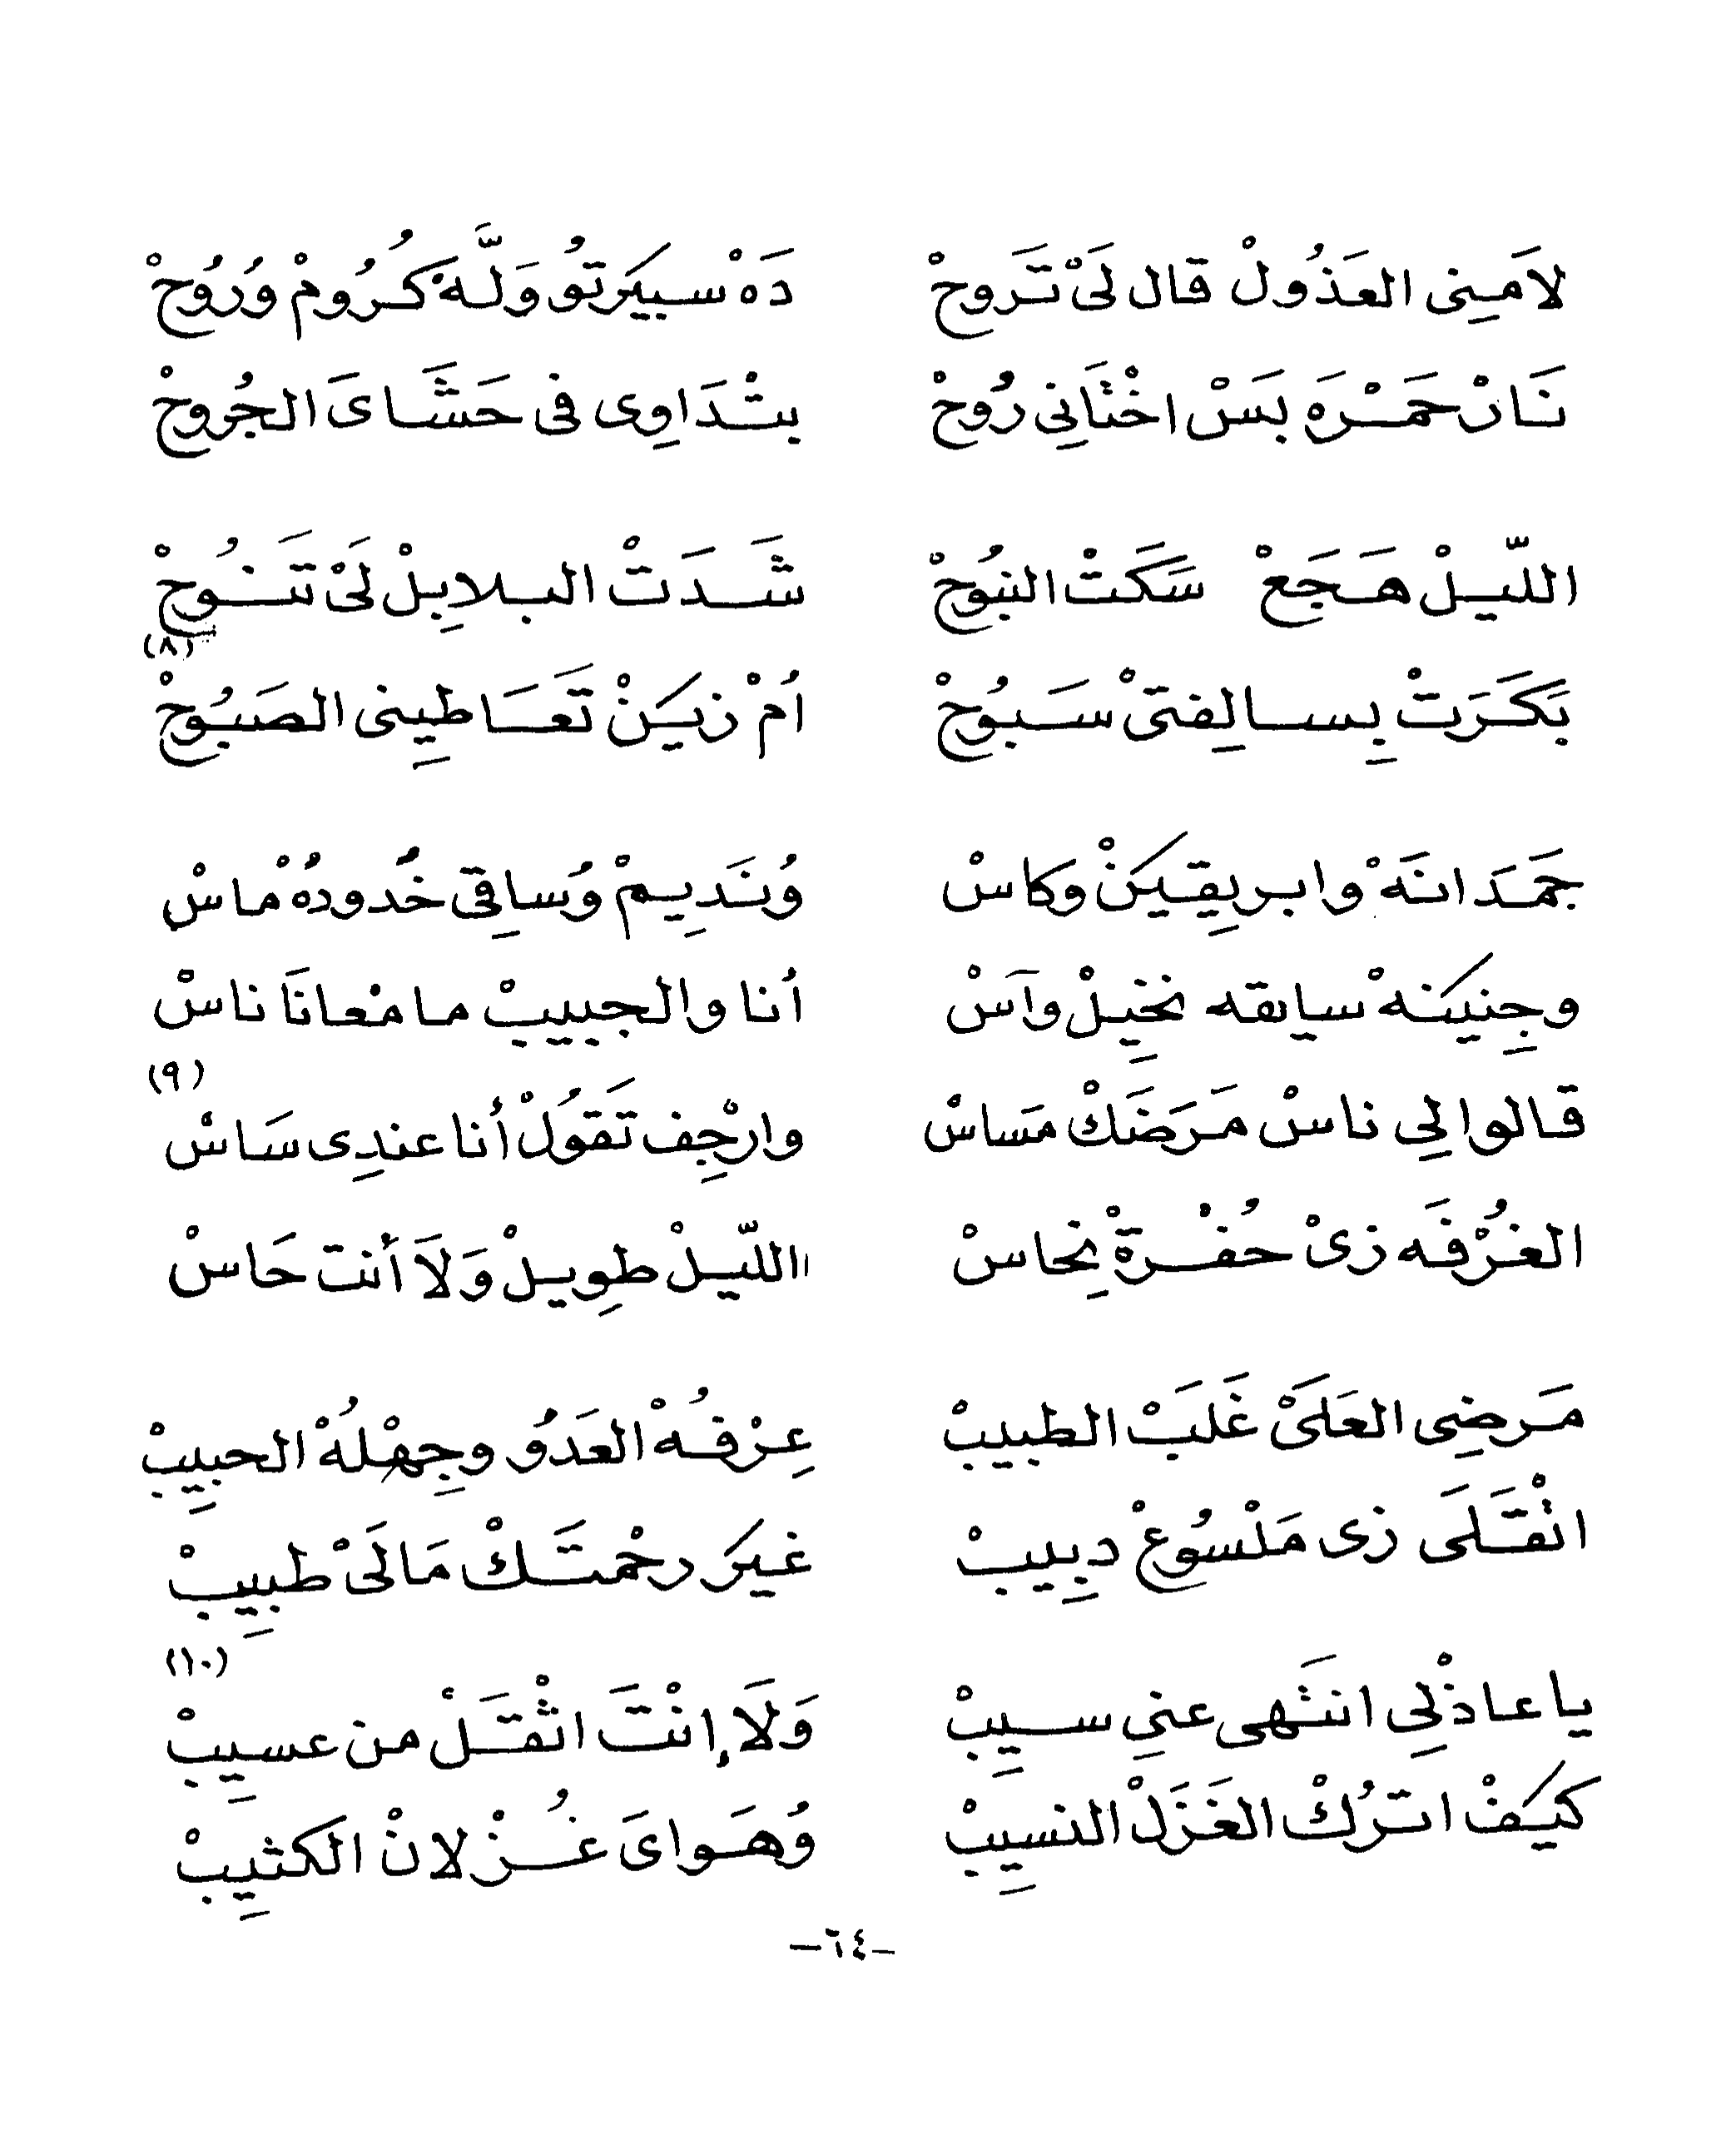 لاَمِنِى العَذُولْ قال لَىْ تَروحْ    دَهْ سبيَرتوُ وَلَّهْ كُرُومْ وُرُوحْ
نَارْ حَمْرَه بَسْ اخْتَانِى رُوحْ    بتْدَاوِى فى حَشَاىَ الجُروحْ
اللّيلْ هَجَعْ سَكَتْ النبُوحْ    شَدَتْ البلابِلْ لَىْ تَنُوحْ
(٨)
بَكَرَتْ بِسالِفتىْ سَبُوحْ    أمْ زيَنْ تَعَاطِينى الصَبُوحْ
جَمَدَانَهْ وابريِقيَنْ وكاسْ    وُنَدِيمْ وُساقِى خُدودُهْ ماسْ
وجِنيَنهْ سايقه نخِيلْ وآسْ    أنا والحبيبْ ما مْعانَا ناسْ
(٩)
قالوا لِى ناسْ مَرَضَكْ مَساسْ    وارْجِف تَقوُلْ أنا عندِى سَاسْ
الغُرْفَه زىْ حُفْرةْ نِحاسْ    اللّيلْ طوِيلْ وَلاَ أنت حَاسْ
مَرضِى العَلَىْ غَلَبْ الطبيبْ    عِرْفُهْ العَدوُ وجِهْلُهْ الحبِيبْ
اتْقَلَى زى مَلْسُوعْ دبِيبْ    غيَر رحْمتَكْ مَالَىْ طبِيبْ
(١٠)
يا عاذْلِى انتَهى عنِى سِيبْ    وَلاَ إنْتَ اثْقَلْ من عسِيبْ
كيَفْ اترُكْ الغَزَلْ النسِيبْ    وُهَواىَ غُزْلانْ الكثِيبْ
-٦٤-